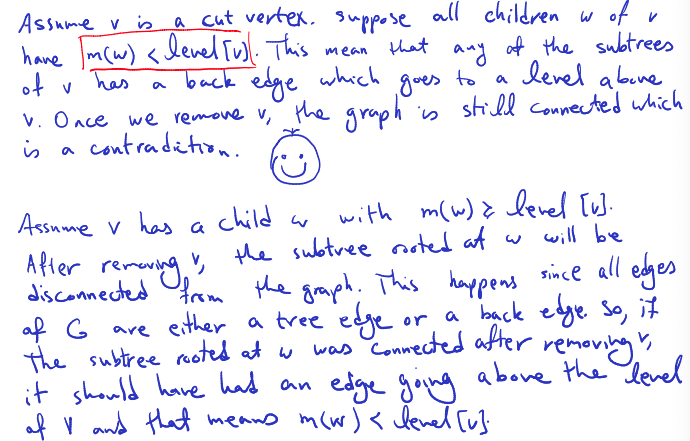 Assume v is a cut vertex. suppose all children w of v
have m(w) < level[v]. This mean that any of the subtrees
of v has a back edge which goes to a level above
v. Once we remove v, the graph is still connected which
is a contradiction.
Assume v has a child w with m(w) ≥ level [v].
After removing v, the subtree rooted at w will be
disconnected from the graph. This happens since all edges
of G are either a tree edge or a back edge. So, if
the subtree rooted at w was connected after removing v,
it should have had an edge going above the level
of v and that means m(w) < level [v].